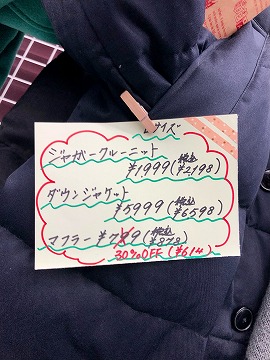 Lサイズ
ジャガークルーニット
¥1999(税込¥2198)
ダウンジャケット
¥5999(税込¥6598)
マフラー¥799(税込¥878)
30%OFF(¥614)